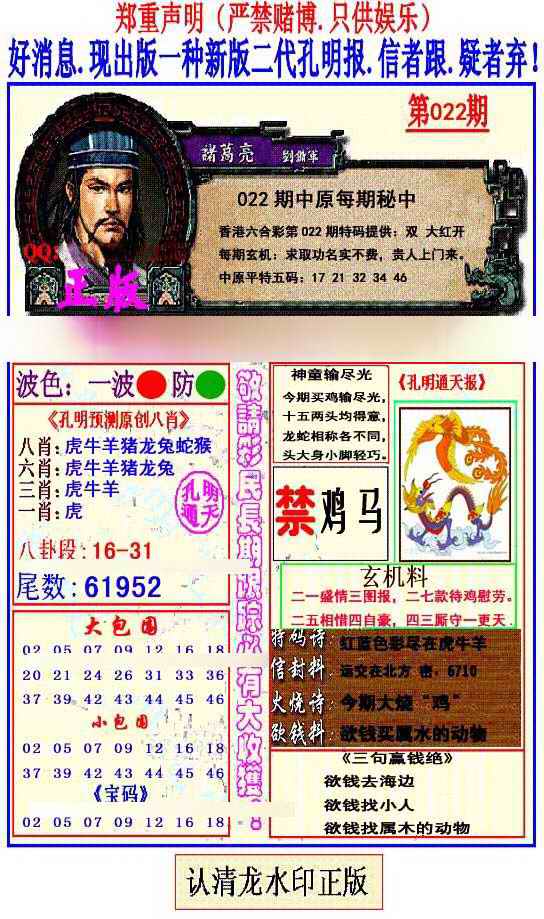 郑重声明（严禁赌博.只供娱乐）
好消息.现出版一种新版二代孔明报.信者跟.疑者弃！
第022期
諸葛亮
022期中原每期秘中
香港六合彩第022期特码提供：双 大红开
每期玄机：求取功名实不费，贵人上门来。
中原平特五码：17 21 32 34 46
QQ:
正版
波色：一波 防
《孔明预测原创八肖》
八肖：虎牛羊猪龙兔蛇猴
六肖：虎牛羊猪龙兔
三肖：虎牛羊
一肖：虎
孔明
通天
八卦段：16-31
尾数：61952
大包围
02 05 07 09 12 16 18
20 21 24 26 31 33 36
37 39 42 43 44 45 46
小包围
02 05 07 09 12 16 18
37 39 42 43 44 45 46
《宝码》
02 05 07 09 12 16 18
敬請彩民長期跟踪必有大收獲
神童输尽光
今期买鸡输尽光，
十五两头均得意，
龙蛇相称各不同，
头大身小脚轻巧。
《孔明通天报》
禁鸡马
玄机料
二一盛情三图报，二七款待鸡慰劳。
二五相惜四自豪，四三厮守一更天．
特码诗：红蓝色彩尽在虎牛羊
信封料：运交在北方 密．6710
火烧诗：今期大烧“鸡”
欲钱料：欲钱买属水的动物
《三句赢钱绝》
欲钱去海边
欲钱找小人
欲钱找属木的动物
认清龙水印正版